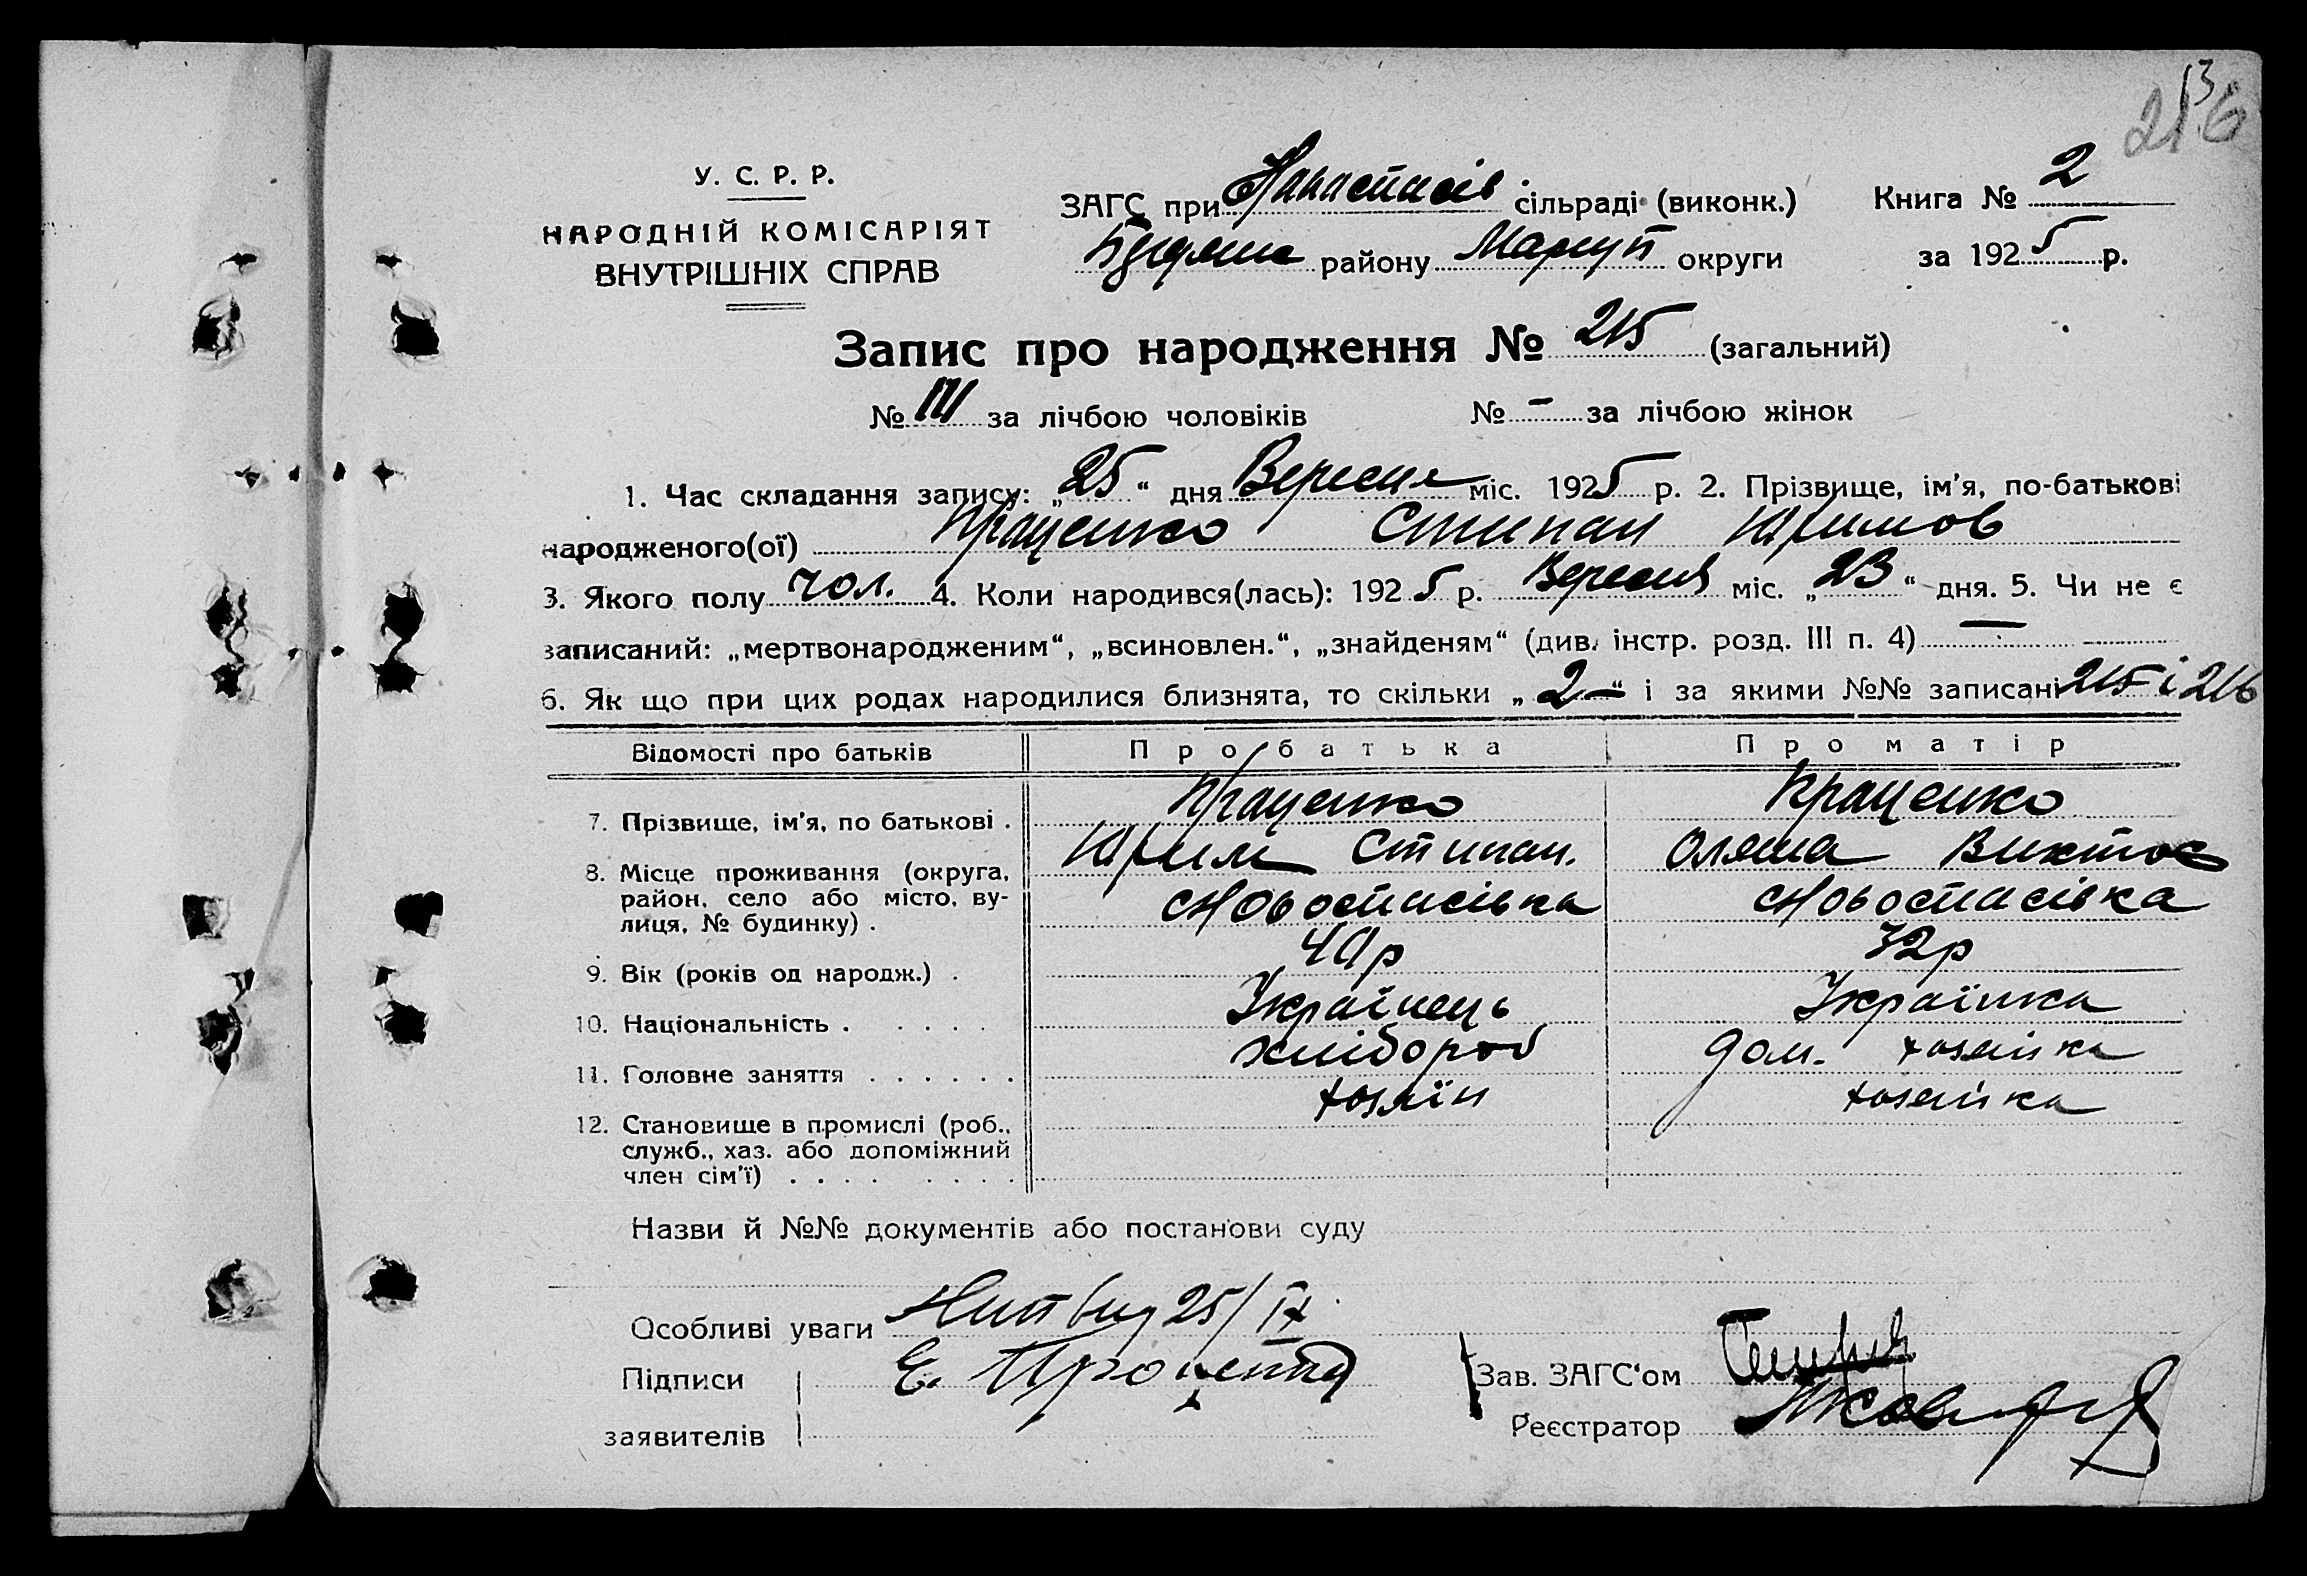 У. С. Р. Р.
НАРОДНІЙ КОМІСАРІЯТ
ВНУТРІШНІХ СПРАВ
ЗАГС при сільраді (виконк.)
району Мариуп округи
Книга № 2
за 1925 р.
Запис про народження № 215 (загальний)
№ 111 за лічбою чоловіків № – за лічбою жінок
1. Час складання запису: „25“ дня Вересня міс. 1925 р. 2. Прізвище, ім'я, по-батькові
народженого(ої) Стипан
3. Якого полу чол. 4. Коли народився(лась): 1925 р. Вересня міс. „23“ дня. 5. Чи не є
записаний: „мертвонародженим“, „всиновлен.“, „знайденям“ (див. інстр. розд. III п. 4) —
6. Як що при цих родах народилися близнята, то скільки „2–“ і за якими №№ записані 215 і 216
Відомості про батьків Про батька Про матір
7. Прізвище, ім'я, по батькові . Кращенко
Стипан.
8. Місце проживання (округа,
район, село або місто, ву-
лиця, № будинку) . Новоспасівка Новоспасівка
9. Вік (років од народж.) . 32р
10. Національність . . . . . Українець Українка
11. Головне заняття . . . . . . хлібороб дом. хозяйка
12. Становище в промислі (роб., хозяїн хозяйка
служб., хаз. або допоміжний
член сім'ї) . . . . . . . .
Назви й №№ документів або постанови суду
Особливі уваги 25/IX
Підписи
заявителів
Зав. ЗАГС'ом
Реєстратор